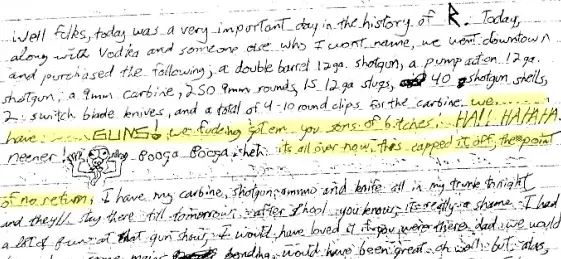 Well folks, today was a very important day in the history of R. Today,
along with Vodka and someone else who I wont name, we went downtown
and purchased the following; a double barrel 12ga. shotgun, a pump action 12ga.
shotgun, a 9mm carbine, 250 9mm rounds, 15 12ga slugs, 40 shotgun shells,
2 switch blade knives, and a total of 4-10 round clips for the carbine. we.......
have....... GUNS! we fucking got em you sons of bitches! HA!! HAHAHA
neener! Booga Booga. heh. its all over now, this capped it off, the point
of no return. I have my carbine, shotgun, ammo and knife all in my trunk tonight
and theyll stay there till tomorrow. after shool you know, its really a shame. I had
a lot of fun at that gun show, I would have loved it if you were there dad. we would
have done some major bonding. would have been great. oh well. but alas,